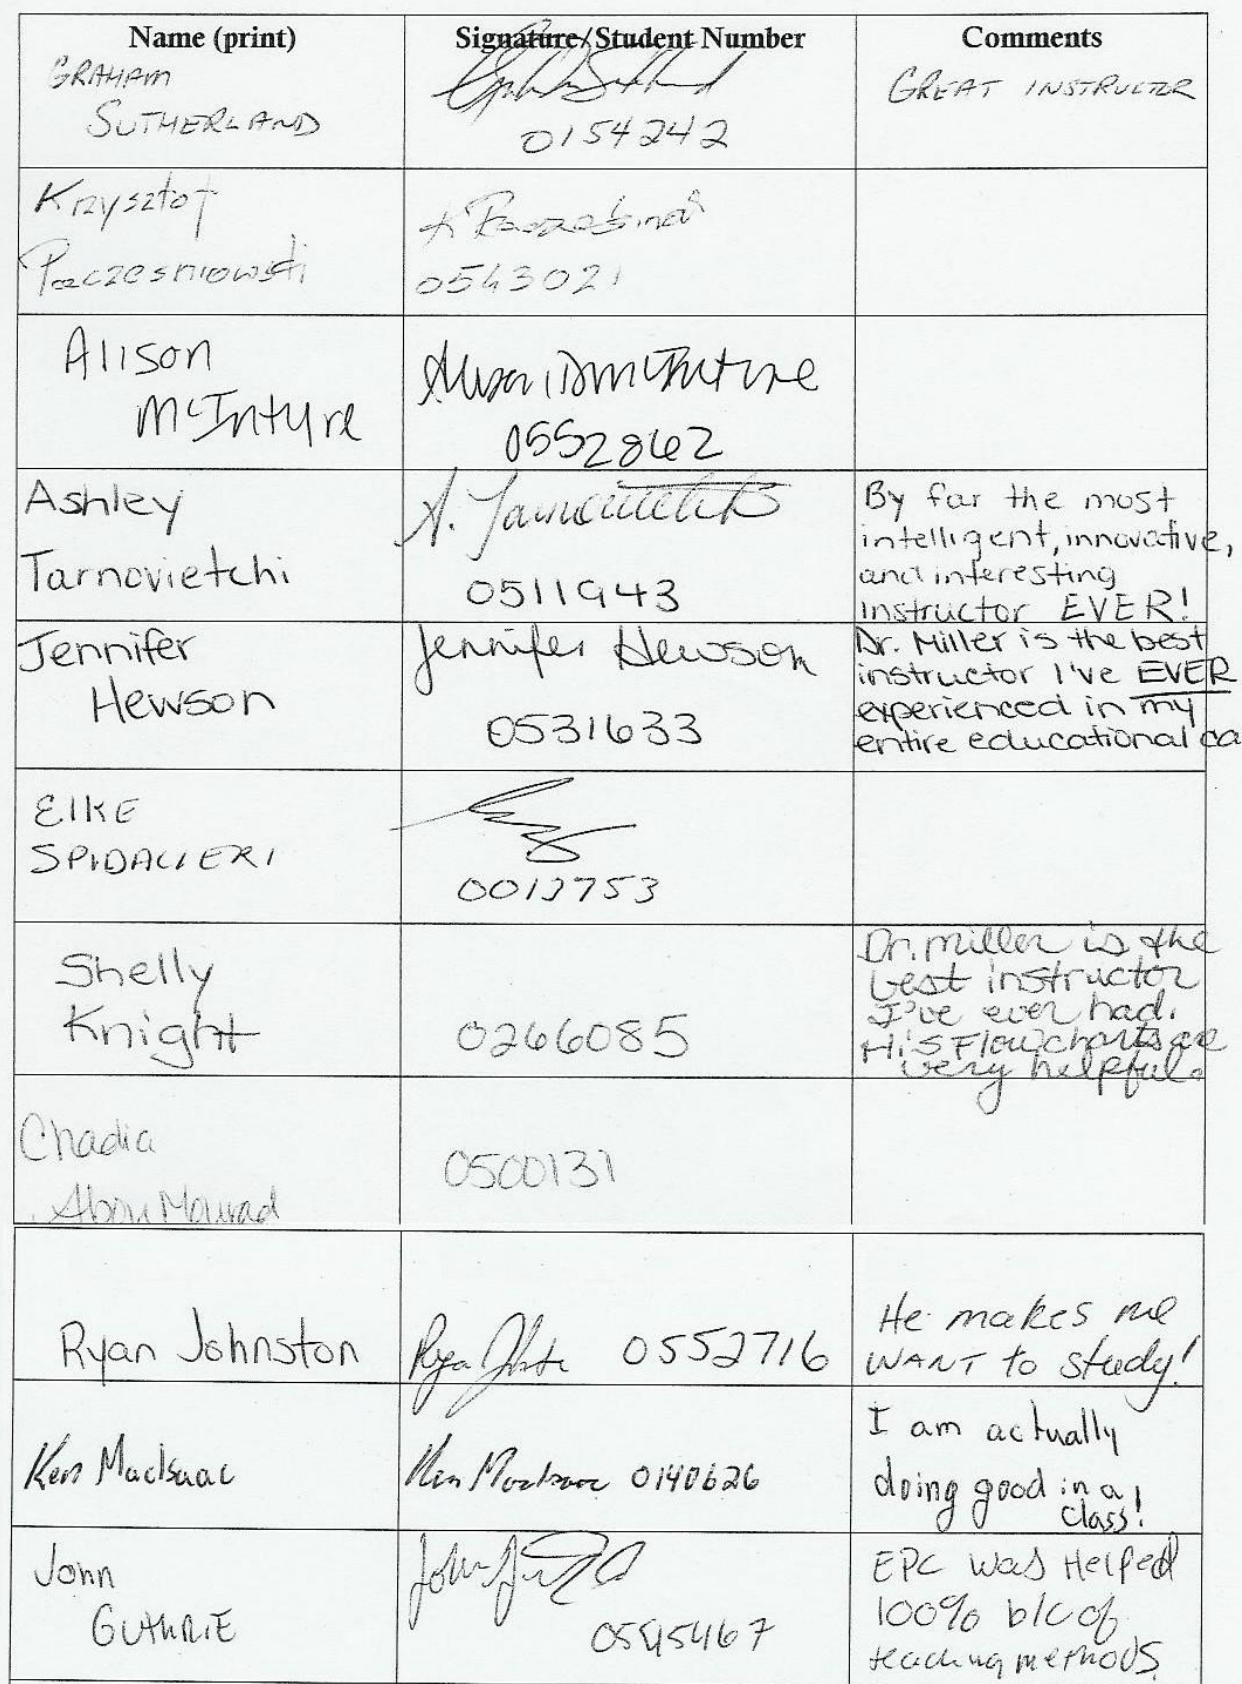 Name (print) Signature/Student Number Comments
GRAHAM
SUTHERLAND
0154242
GREAT INSTRUCTOR
Krzysztof
Paczesniowski
0543021
Alison
McIntyre
Alison D McIntyre
0552862
Ashley
Tarnovietchi
A. Tarnovietchi
0511943
By far the most
intelligent, innovative,
and interesting
instructor EVER!
Jennifer
Hewson
Jennifer Hewson
0531633
Dr. Miller is the best
instructor I've EVER
experienced in my
entire educational ca
Elke
SPIDALIERI
0013753
Shelly
Knight
0266085
Dr. Miller is the
best instructor
I've ever had.
His Flowcharts are
very helpful.
Chadia
Abou Mourad
0500131
Ryan Johnston
0552716
He makes me
WANT to study!
Ken MacIsaac
Ken MacIsaac 0140626
I am actually
doing good in a
class!
John
GUTHRIE
0545467
EPC was Helped
100% b/c of
teaching methods.